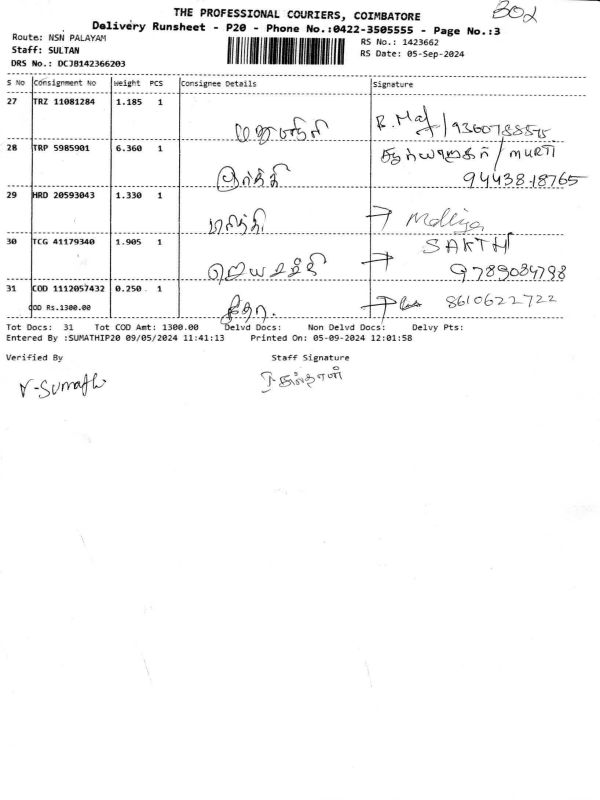 THE PROFESSIONAL COURIERS, COIMBATORE 302
Delivery Runsheet - P20 - Phone No.:0422-3505555 - Page No.:3
Route: NSN PALAYAM RS No.: 1423662
Staff: SULTAN RS Date: 05-Sep-2024
DRS No.: DCJB142366203
S No Consignment No Weight PCS Consignee Details Signature
27 TRZ 11081284 1.185 1
R. Maf /
28 TRP 5985901 6.360 1
/ MURTI
மூர்த்தி 94438-18765
29 HRD 20593043 1.330 1
30 TCG 41179340 1.905 1
SAKTHI
9789084798
31 COD 1112057432 0.250 1
COD Rs.1300.00 8610622722
Tot Docs: 31 Tot COD Amt: 1300.00 Delvd Docs: Non Delvd Docs: Delvy Pts:
Entered By :SUMATHIP20 09/05/2024 11:41:13 Printed On: 05-09-2024 12:01:58
Verified By Staff Signature
V-Sumathi